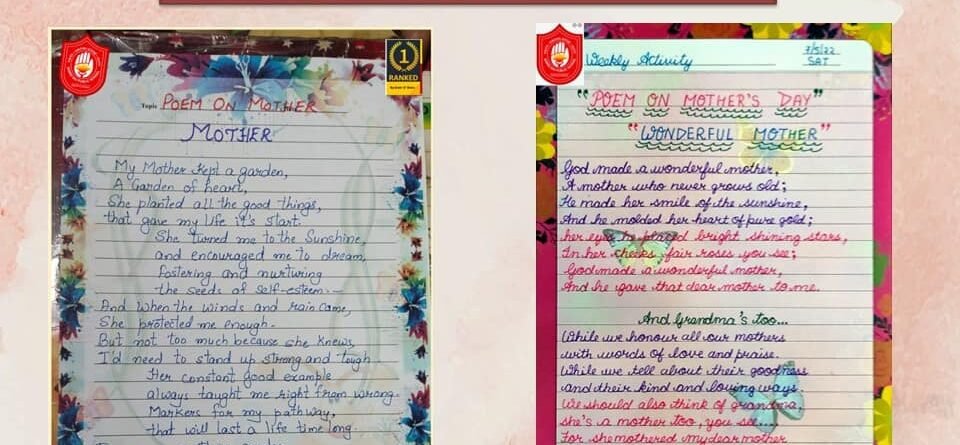 1
RANKED
Topic POEM ON MOTHER
MOTHER
My Mother kept a garden,
A Garden of heart,
She planted all the good things,
that gave my life it's start.
She turned me to the Sunshine,
and encouraged me to dream,
Fostering and nurturing
the seeds of self-esteem.—
And when the winds and rain came,
She protected me enough.
But not too much because she knews,
I'd need to stand up strong and tough.
Her constant good example
always taught me right from wrong.
Markers for my pathway,
that will last a life time long.
Weekly Activity
7/5/22
SAT
"POEM ON MOTHER'S DAY"
"WONDERFUL MOTHER"
God made a wonderful mother,
A mother who never grows old;
He made her smile of the sunshine,
And he molded her heart of pure gold;
her eyes he placed bright shining stars,
In her cheeks fair roses you see;
God made a wonderful mother,
And he gave that dear mother to me.
And Grandma's too...
While we honour all our mothers
with words of love and praise.
While we tell about their goodness
and their kind and loving ways.
We should also think of grandma,
she's a mother too, you see...
For she mothered my dear mother